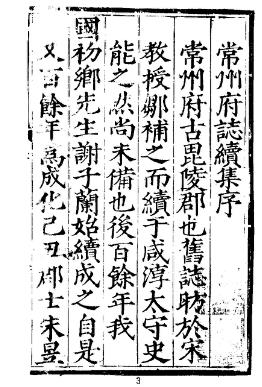 常州府誌續集序
常州府古毘陵郡也舊誌昉於宋
教授鄒補之而續于咸淳太守史
能之然尚未備也後百餘年我
國初鄉先生謝子蘭始續成之自是
又百餘年為成化己丑郡士朱昱
3